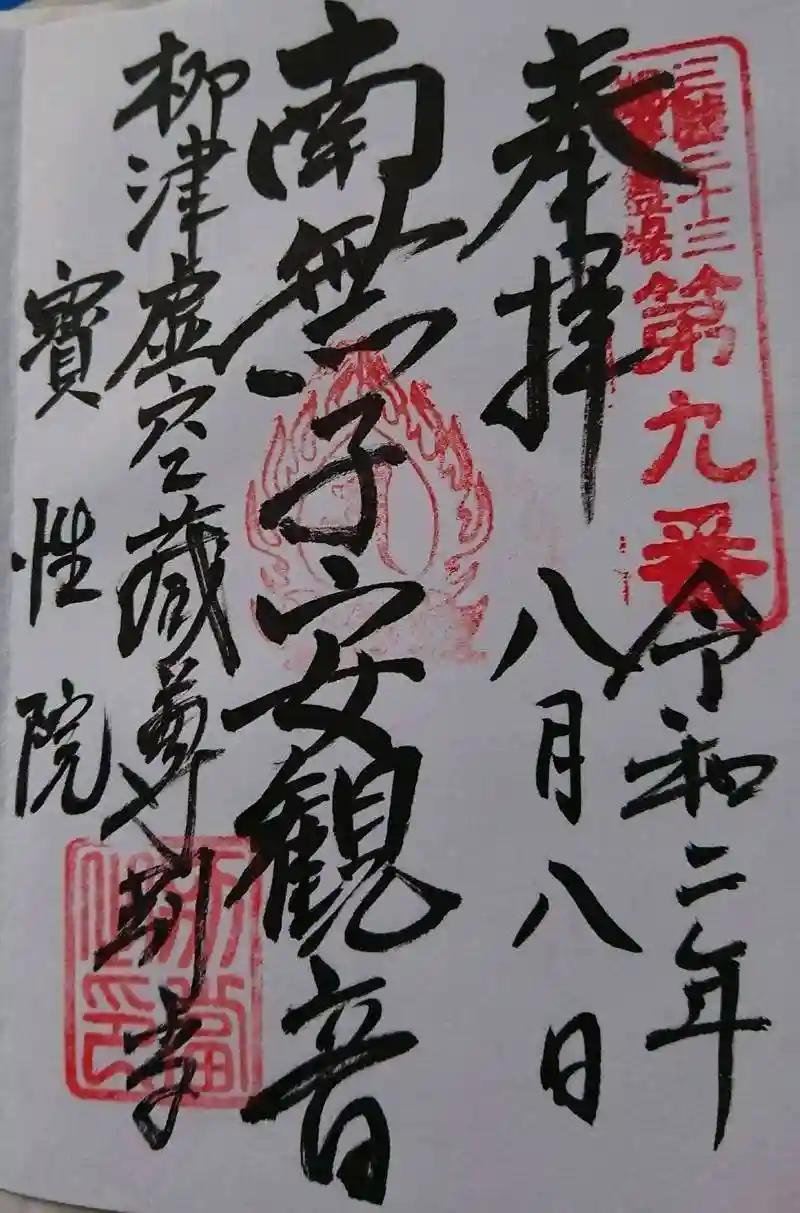 三陸三十三
観音霊場
第九番
令和二年
奉拝 八月八日
南無子安観音
柳津虚空蔵尊別当
寳性院